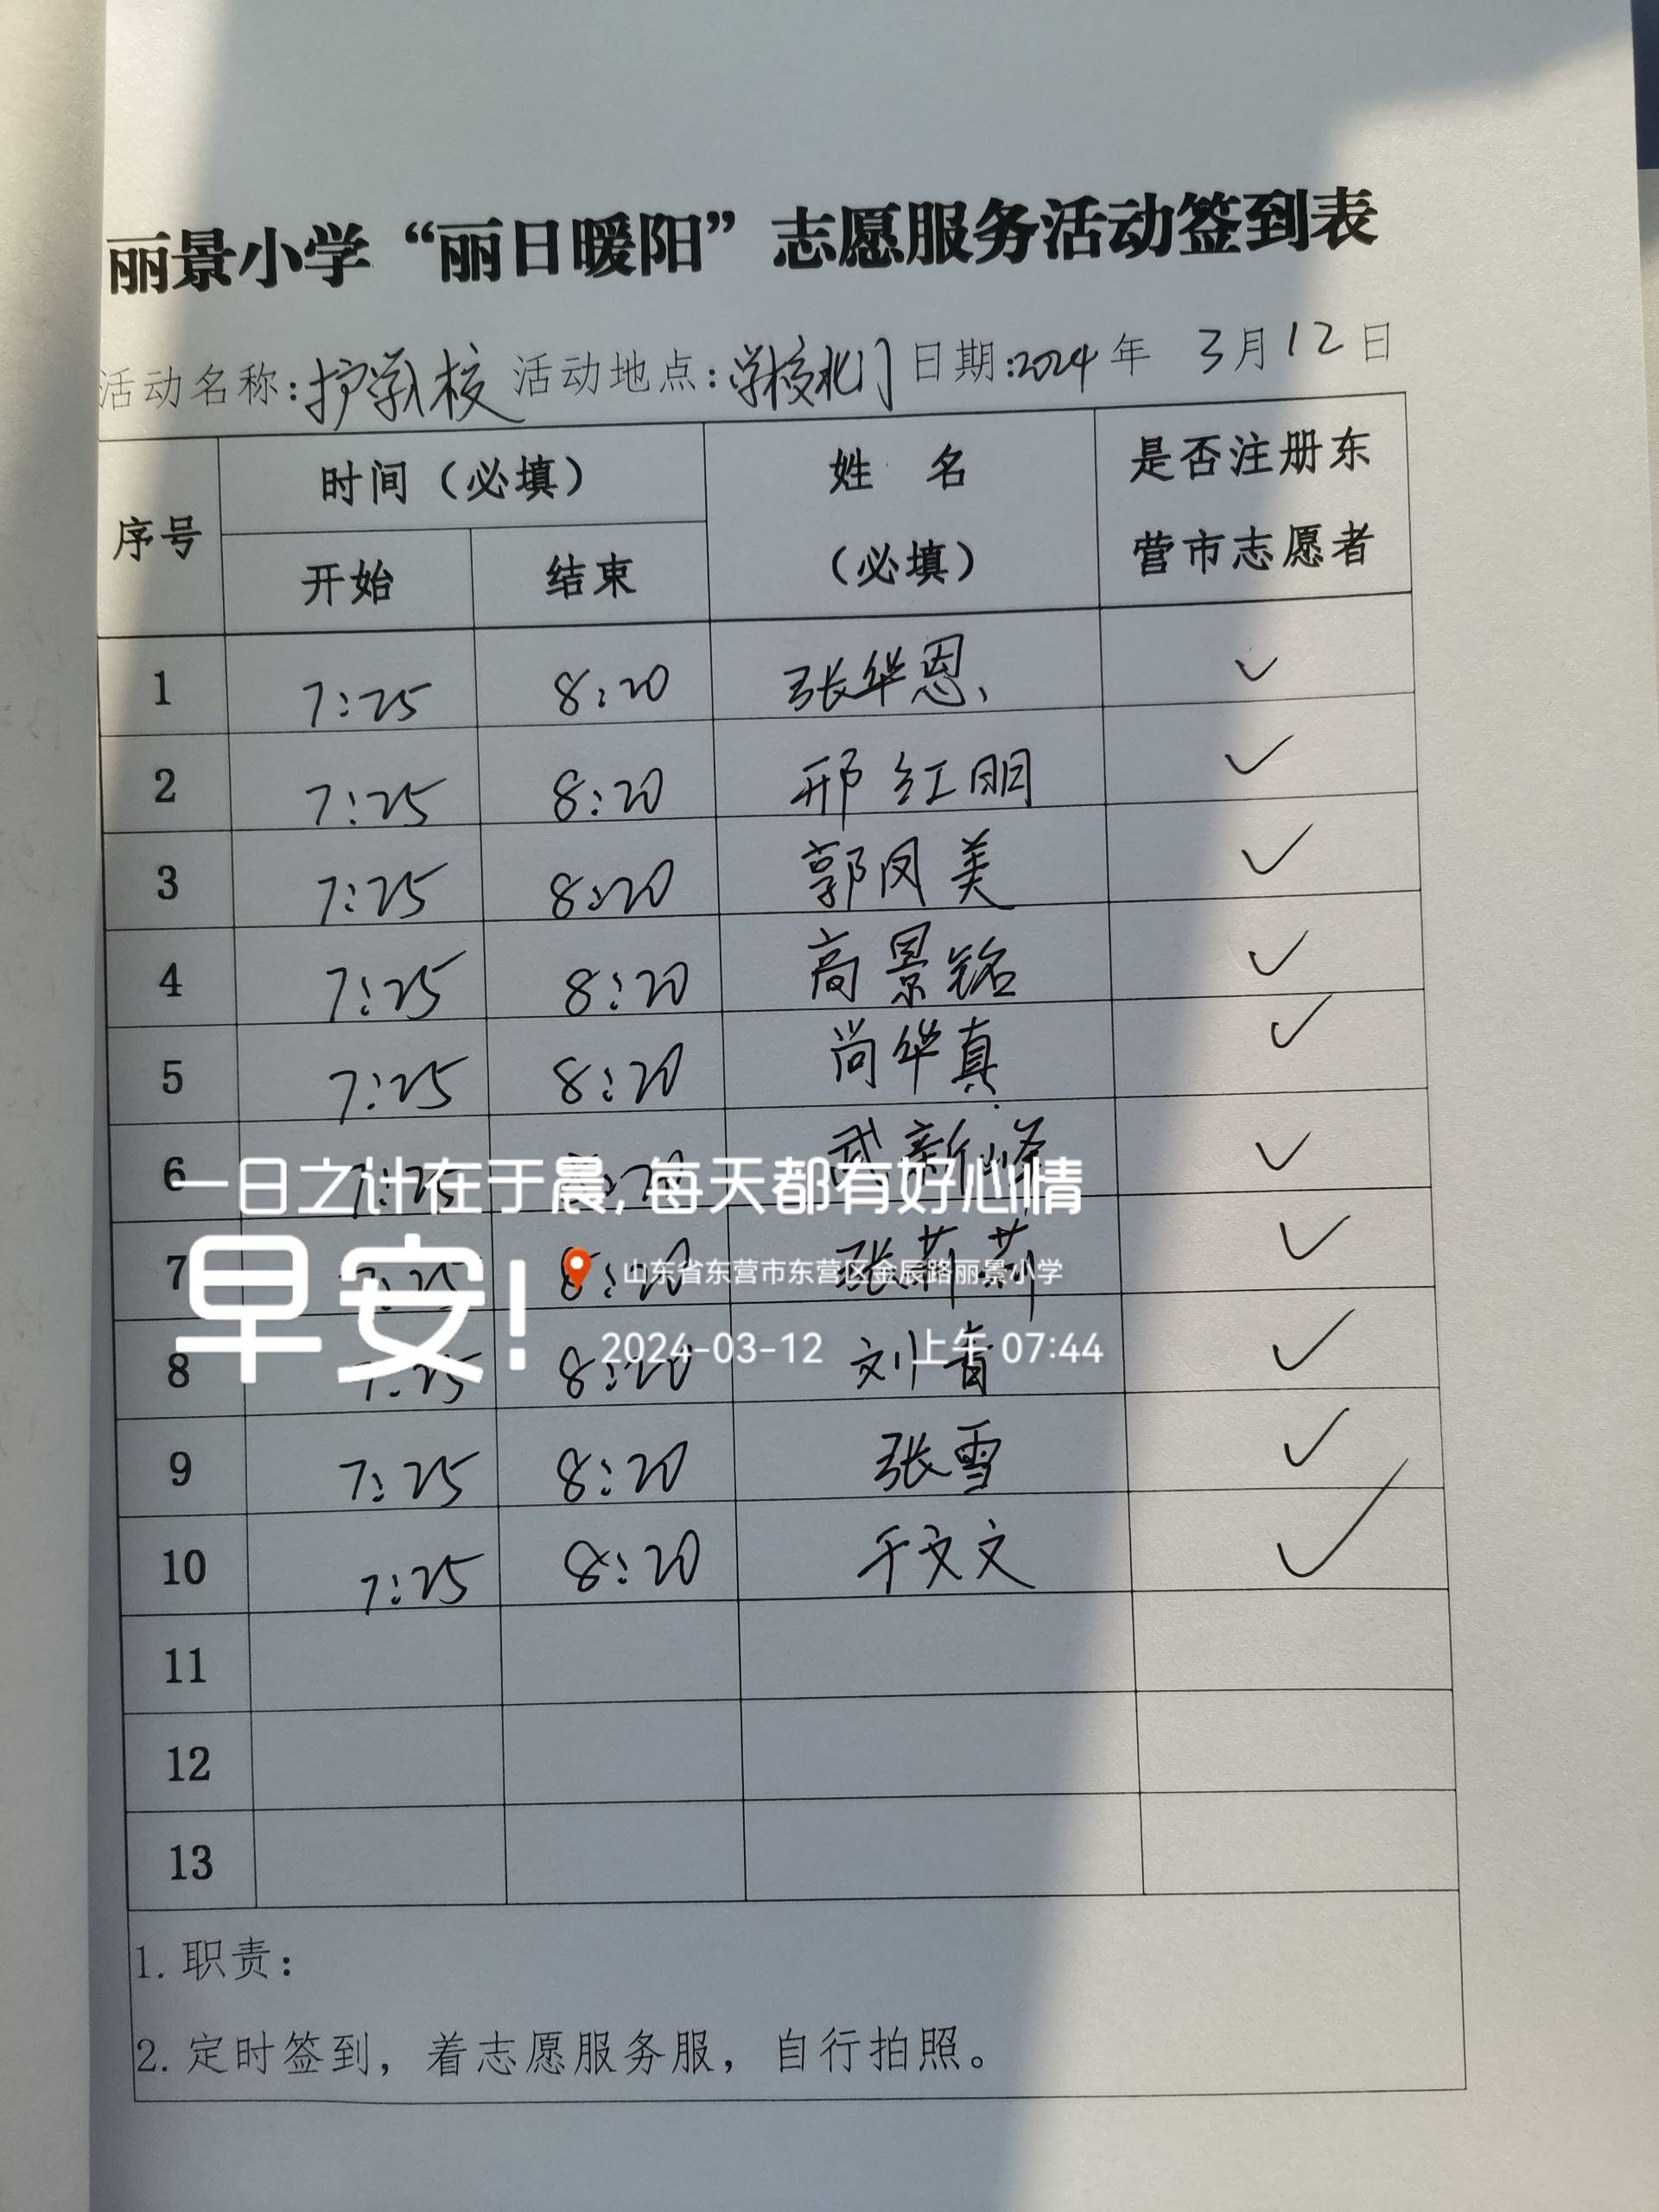 丽景小学“丽日暖阳”志愿服务活动签到表
活动名称：护学校 活动地点：学校北门 日期：2024年 3月12日
序号 时间（必填） 姓 名（必填） 是否注册东营市志愿者
开始 结束
1 7:25 8:20 张华恩、 ✓
2 7:25 8:20 邢红明 ✓
3 7:25 8:20 郭凤美 ✓
4 7:25 8:20 高景铭 ✓
5 7:25 8:20 尚华真 ✓
6 7:25 8:20 武新峰 ✓
一日之计在于晨，每天都有好心情
7 7:25 8:20 张莉莉 ✓
早安！
山东省东营市东营区金辰路丽景小学
2024-03-12 上午 07:44
8 7:25 8:20 刘 ✓
9 7:25 8:20 张雪 ✓
10 7:25 8:20 于文文 ✓
11
12
13
1. 职责：
2. 定时签到，着志愿服务服，自行拍照。